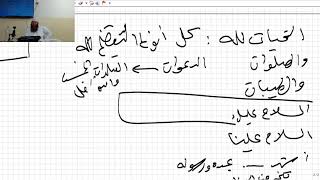 التحيات لله : كل أنواع التعظيم لله
والصلوات الدعوات ← الصلوات الخمس
والطيبات
السلام عليك
السلام علينا
أشهد عبده ورسوله